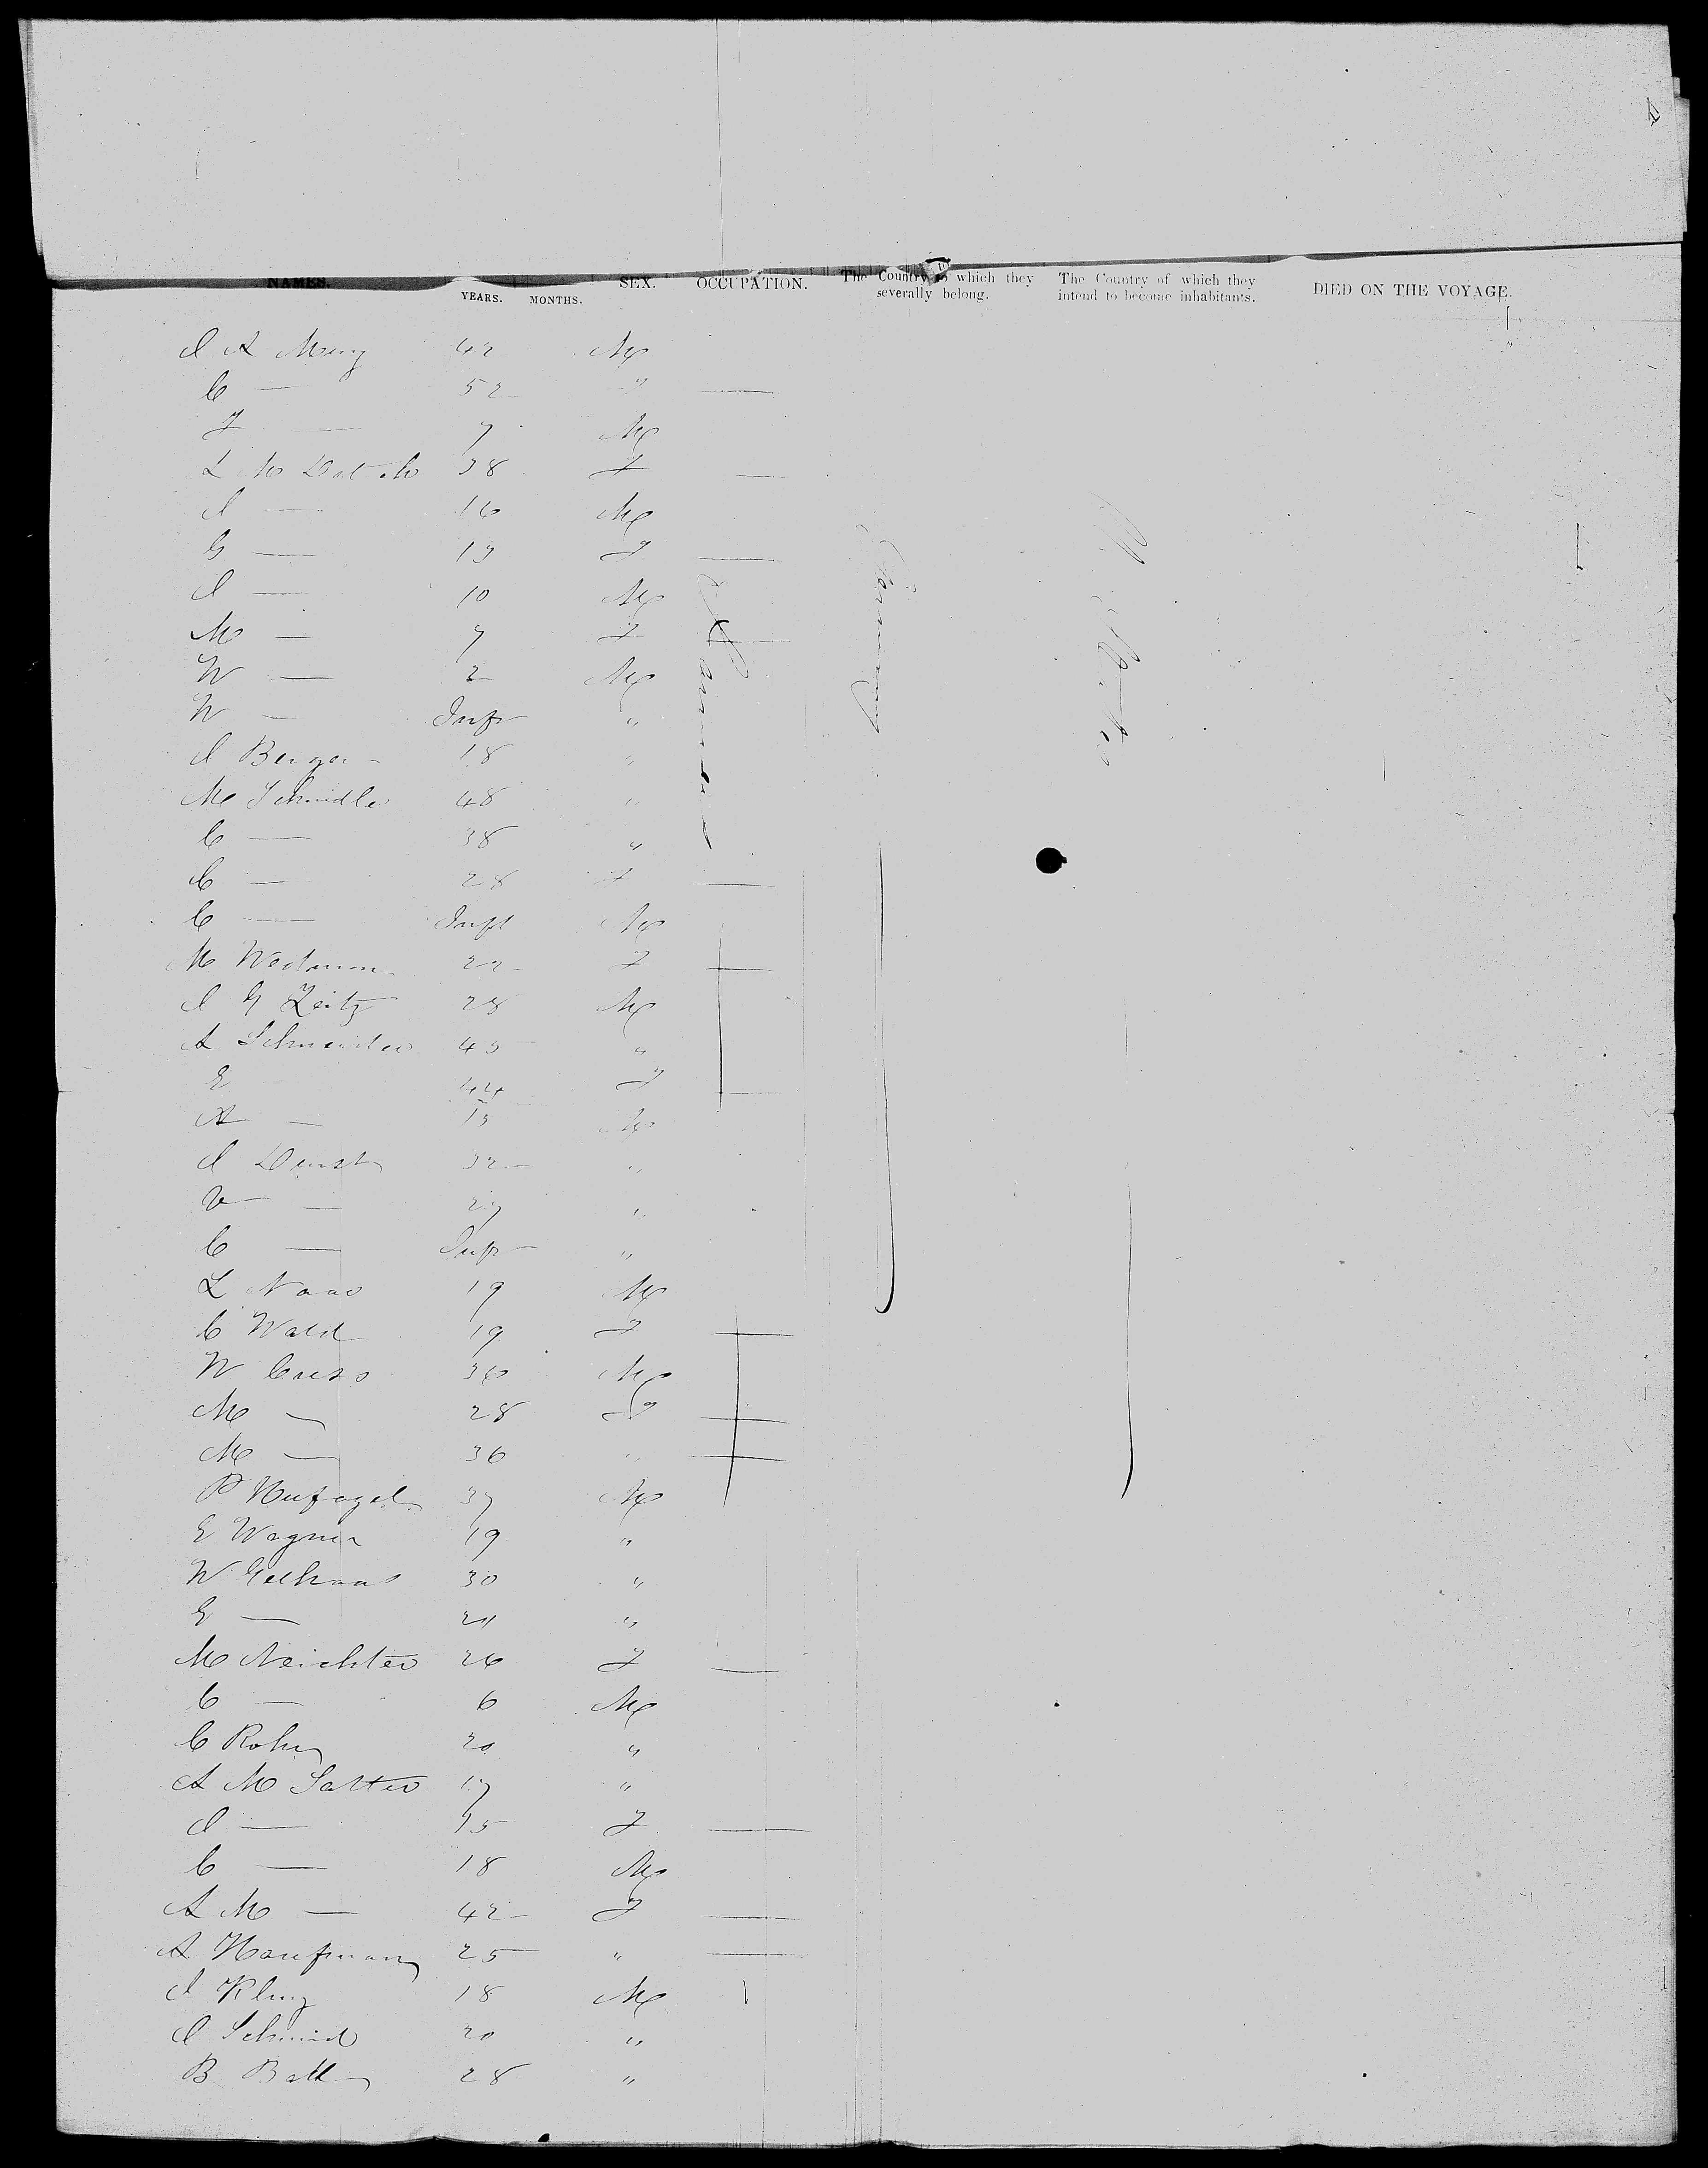 NAMES. YEARS. MONTHS. SEX. OCCUPATION. The Country to which they severally belong. The Country of which they intend to become inhabitants. DIED ON THE VOYAGE.
J A 42 M
C — 52 F —
F — 7 M
L M 38 F —
J — 16 M
G — 13 F —
J — 10 M
M — 7 F —
W — 2 M
W — Inft "
J Berger 18 "
M Schindler 48 "
C — 38 "
C — 28 F —
C — Inft M
M 22 F —
J G Zeitz 28 M
A Schneider 43 "
E 44 F —
A — 13 M
J 32 "
V — 27 "
C — Inft "
L Naas 19 M
C Wald 19 F —
W 36 M
M — 28 F —
M — 36 " —
P 37 M
E Wagner 19 "
W 30 "
E — "
M 26 F —
C — 6 M
C Rohn 20 "
A M Satter 17 "
J — 15 F —
C — 18 M
A M — 42 F —
A Haufmann 25 " —
J Kling 18 M
J Schmid 20 "
B 28 "
Farmers
Germany
U. States